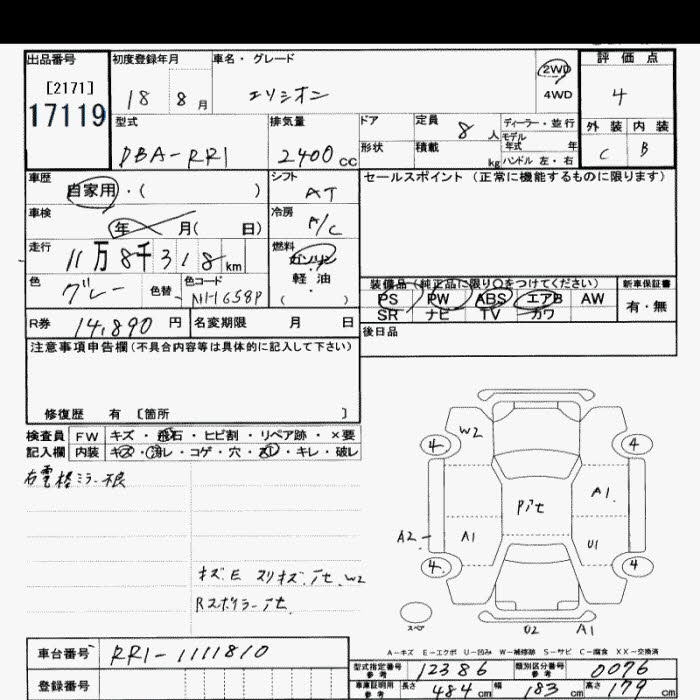 出品番号 初度登録年月 車名・グレード 2WD 4WD 評価点
[2171]
17119 18 8月 エリシオン 4
型式 排気量 ドア 定員 8人 ディーラー・並行 外装 内装
DBA-RR1 2400cc 形状 積載 kg モデル年式 年 ハンドル 左・右 C B
車歴 自家用・( ) シフト AT セールスポイント (正常に機能するものに限ります)
車検 年 月( 日) 冷房 A/C
走行 11万8千318km 燃料 ガソリン 軽油 ( ・ )
色 グレー 色替 色コード NH658P
装備品(純正品に限り○をつけてください) 新車保証書
PS PW ABS エアB AW 有・無
SR ナビ TV カワ
R券 14,890円 名変期限 月 日 後日品
注意事項申告欄(不具合内容等は具体的に記入して下さい)
修復歴 有 〔箇所 〕
検査員 FW キズ・飛石・ヒビ割・リペア跡・×要
記入欄 内装 キズ・汚レ・コゲ・穴・スレ・キレ・破レ
右電格ミラー不良
キズ.E スリキズ.アセ.W2
Rスポイラーアセ
W2
4 4
Pアセ A1
A2 A1 U1
4 4
スペア U2 A1
A-キズ E-エクボ U-凹み W-補修跡 S-サビ C-腐食 XX-交換済
車台番号 RR1-1111810
型式指定番号 参考 12386 類別区分番号 参考 0076
登録番号 車庫証明用 参考 長さ 484cm 幅 183cm 高さ 179cm